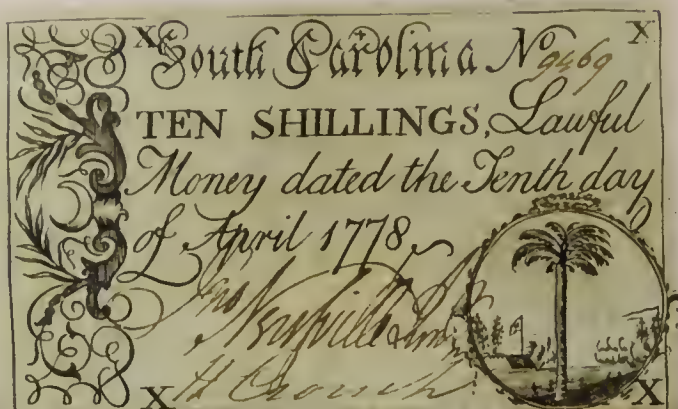 X South Carolina No 9469 X
TEN SHILLINGS, Lawful
Money dated the Tenth day
of April 1778.
Jno
Neufville
H Crouch
X X